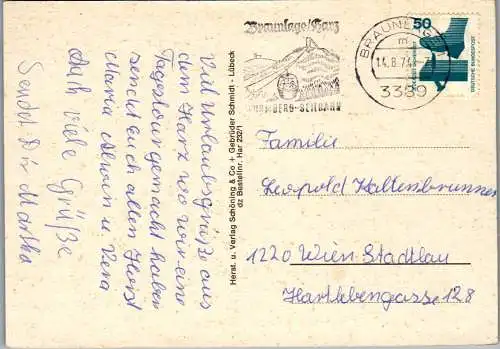 Viel Urlaubsgrüße aus
dem Harz wo wir eine
Tagestour gemacht haben
sendet Euch allen Horst
Maria Alwin u Vera
Auch viele Grüße
Sendet Dir Martha
Herst. u. Verlag Schöning & Co + Gebrüder Schmidt - Lübeck
dz Bestellnr. Har 232/1
Braunlage/Harz
WURMBERG-SEILBAHN
BRAUNLAGE
m
14.8.74
3389
50
DEUTSCHE BUNDESPOST
Familie
Leopold Kaltenbrunner
1220 Wien Stadlau
Hartlebengasse 128